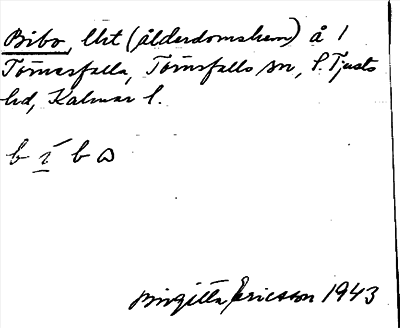 Bibo, lht (ålderdomshem) å 1
Törnesfalla, Törnsfalls sn, S. Tjusts
hd, Kalmar l.
b í b ω
Birgitta Ericsson 1943